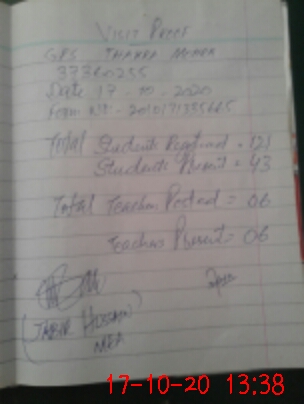 Visit Proof
GPS THAHRA
37360255
Date 17-10-2020
Form No
Total Students = 121
Students Present = 43
Total Teacher Posted = 06
Teachers Present = 06
MEA
17-10-20 13:38